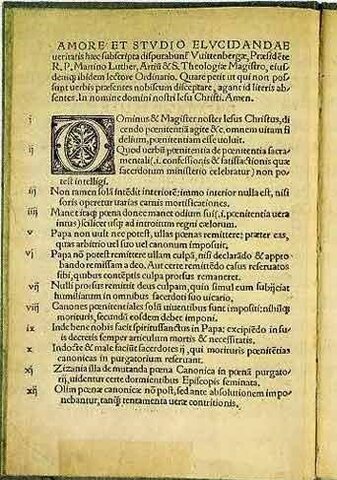 AMORE ET STVDIO ELVCIDANDAE
ueritatis hæc subscripta disputabunt̃ Vuittenbergæ, Præsidẽte
R. P. Martino Luther, Artiũ & S. Theologiæ Magistro, eius-
demq; ibidem lectore Ordinario. Quare petit ut qui non pos-
sunt uerbis præsentes nobiscum disceptare, agant id literis ab-
sentes. In nomine domini nostri Iesu Christi. Amen.
i Ominus & Magister noster Iesus Christus, di-
cendo pœnitentiã agite &c. omnem uitam fi-
delium, pœnitentiam esse uoluit.
ij Quod uerbũ pœnitentia de pœnitentia sacra-
mentali (.i. confessionis & satisfactionis quæ
sacerdotum ministerio celebratur) non po-
test intelligi.
iij Non tamen solã intẽdit interiorẽ: immo interior nulla est, nisi
foris operetur uarias carnis mortificationes.
iiij Manet itaq; pœna donec manet odium sui (.i. pœnitentia uera
intus) scilicet usq; ad introitum regni cælorum.
v Papa non uult nec potest, ullas pœnas remittere; præter eas,
quas arbitrio uel suo uel canonum imposuit.
vj Papa nõ potest remittere ullam culpã, nisi declarãdo & appro-
bando remissam a deo. Aut certe remittẽdo casus reseruatos
sibi, quibus contẽptis culpa prorsus remaneret.
vij Nulli prorsus remittit deus culpam, quin simul eum subijciat
humiliatum in omnibus sacerdoti suo uicario,
viij Canones pœnitentiales solũ uiuentibus sunt impositi; nihilq;
morituris, secundũ eosdem debet imponi.
ix Inde bene nobis facit spiritussanctus in Papa: excipiẽdo in su-
is decretis semper articulum mortis & necessitatis.
x Indocte & male faciũt sacerdotes ij, qui morituris pœnitẽtias
canonicas in purgatorium reseruant.
xj Zizania illa de mutanda pœna Canonica in pœnã purgato-
rij, uidentur certe dormientibus Episcopis seminata.
xij Olim pœnæ canonicæ nõ post, sed ante absolutionem impo-
nebantur, tanq̃ tentamenta ueræ contritionis,